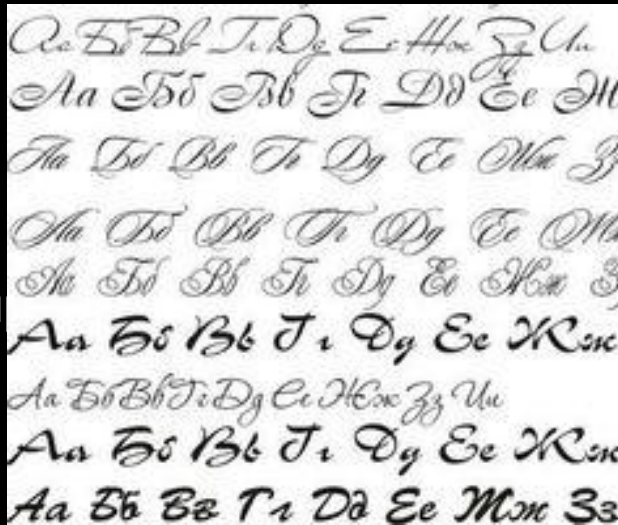 Аа Бб Вв Гг Дд Ее Жж Зз Ии
Аа Бб Вв Гг Дд Ее Ж
Аа Бб Вв Гг Дд Ее Жж З
Аа Бб Вв Гг Дд Ее Ж
Аа Бб Вв Гг Дд Ее Жж З
Аа Бб Вв Гг Дд Ее Жж
Аа Бб Вв Гг Дд Ее Жж Зз Ии
Аа Бб Вв Гг Дд Ее Жж
Аа Бб Вв Гг Дд Ее Жж Зз